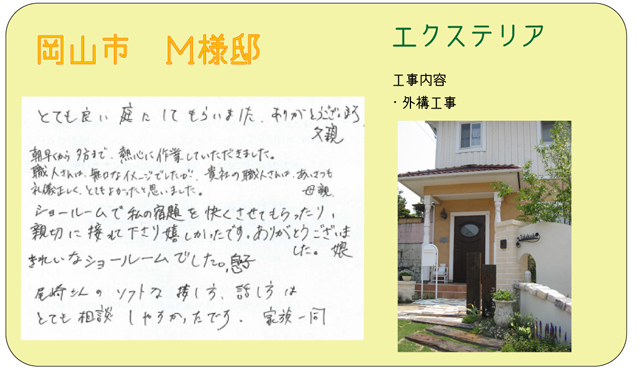 岡山市　M様邸
エクステリア
工事内容
・外構工事
とても良い庭にしてもらいました。ありがとうございます。
父親
朝早くから夕方まで、熱心に作業していただきました。
職人さんは、無口なイメージでしたが、貴社の職人さんは、あいさつも
礼儀正しく、とてもよかったと思いました。 母親
ショールームで私の宿題を快くさせてもらったり、
親切に接して下さり嬉しかったです。ありがとうございま
した。 娘
きれいなショールームでした。息子
尾崎さんのソフトな接し方、話し方は
とても相談しやすかったです。 家族一同